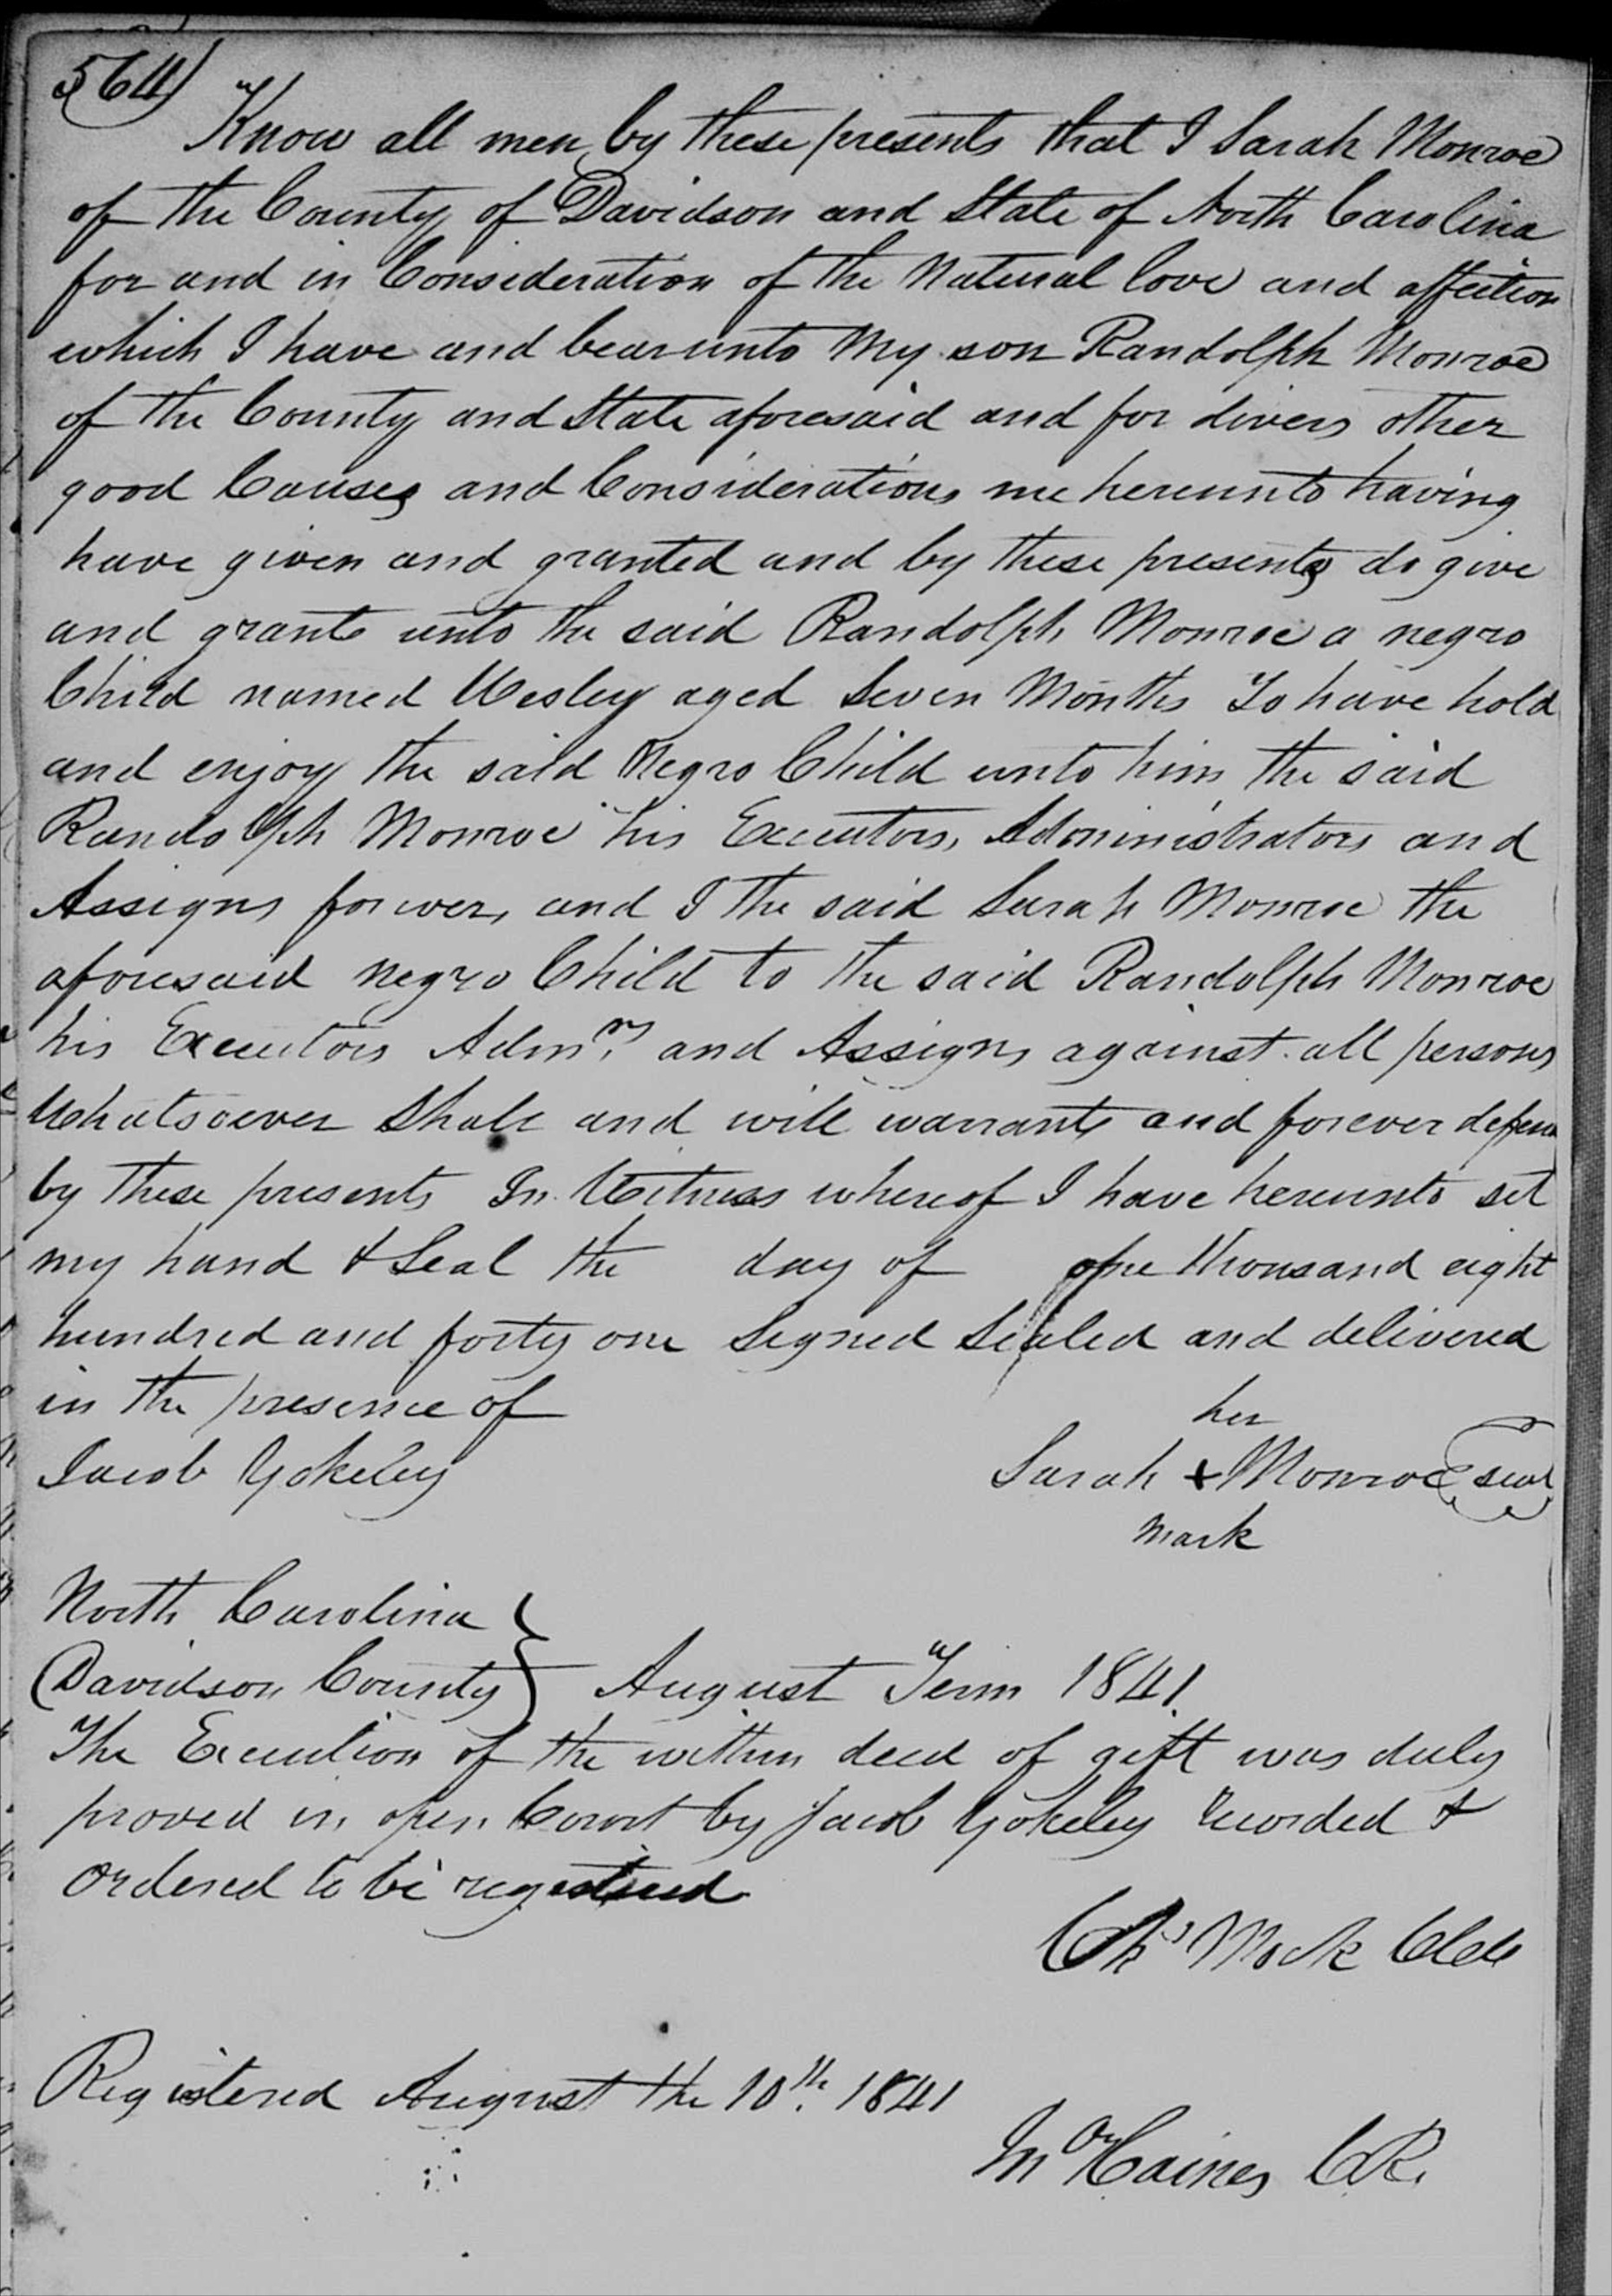 564)
Know all men by these presents that I Sarah Monroe
of the County of Davidson and State of North Carolina
for and in Consideration of the Natural love and affection
which I have and bear unto my son Randolph Monroe
of the County and State aforesaid and for divers other
good Causes and Considerations me hereunto having
have given and granted and by these presents do give
and grant unto the said Randolph Monroe a negro
Child named Wesley aged Seven Months To have hold
and enjoy the said Negro Child unto him the said
Randolph Monroe his Executors, Administrators and
Assigns forever, and I the said Sarah Monroe the
aforesaid negro Child to the said Randolph Monroe
his Executors Admrs and Assigns against all persons
Whatsoever Shall and will warrant and forever defend
by these presents In Witness whereof I have hereunto set
my hand & Seal the day of one thousand eight
hundred and forty one Signed Sealed and delivered
in the presence of
her
Jacob Yokeley Sarah + Monroe seal
mark
North Carolina
Davidson County } August Term 1841.
The Execution of the within deed of gift was duly
proved in open Court by Jacob Yokeley recorded &
ordered to be registered
Chs Mock Clk
Registered August the 10th. 1841
Haines C.R.